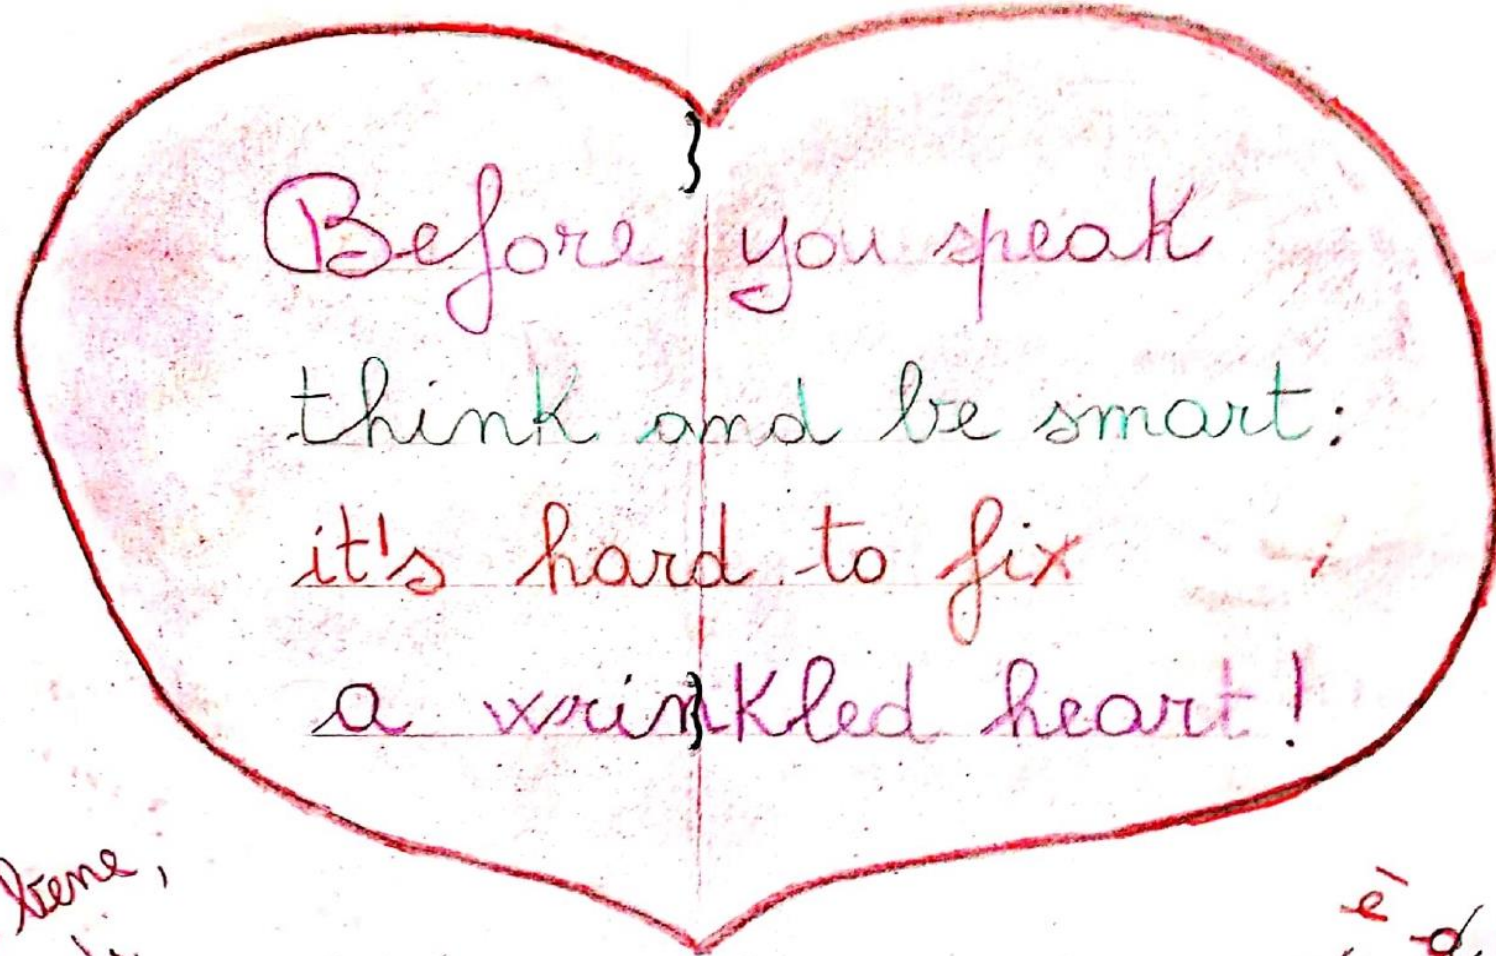 Before you speak
think and be smart:
it's hard to fix
a wrinkled heart!
bene,
è